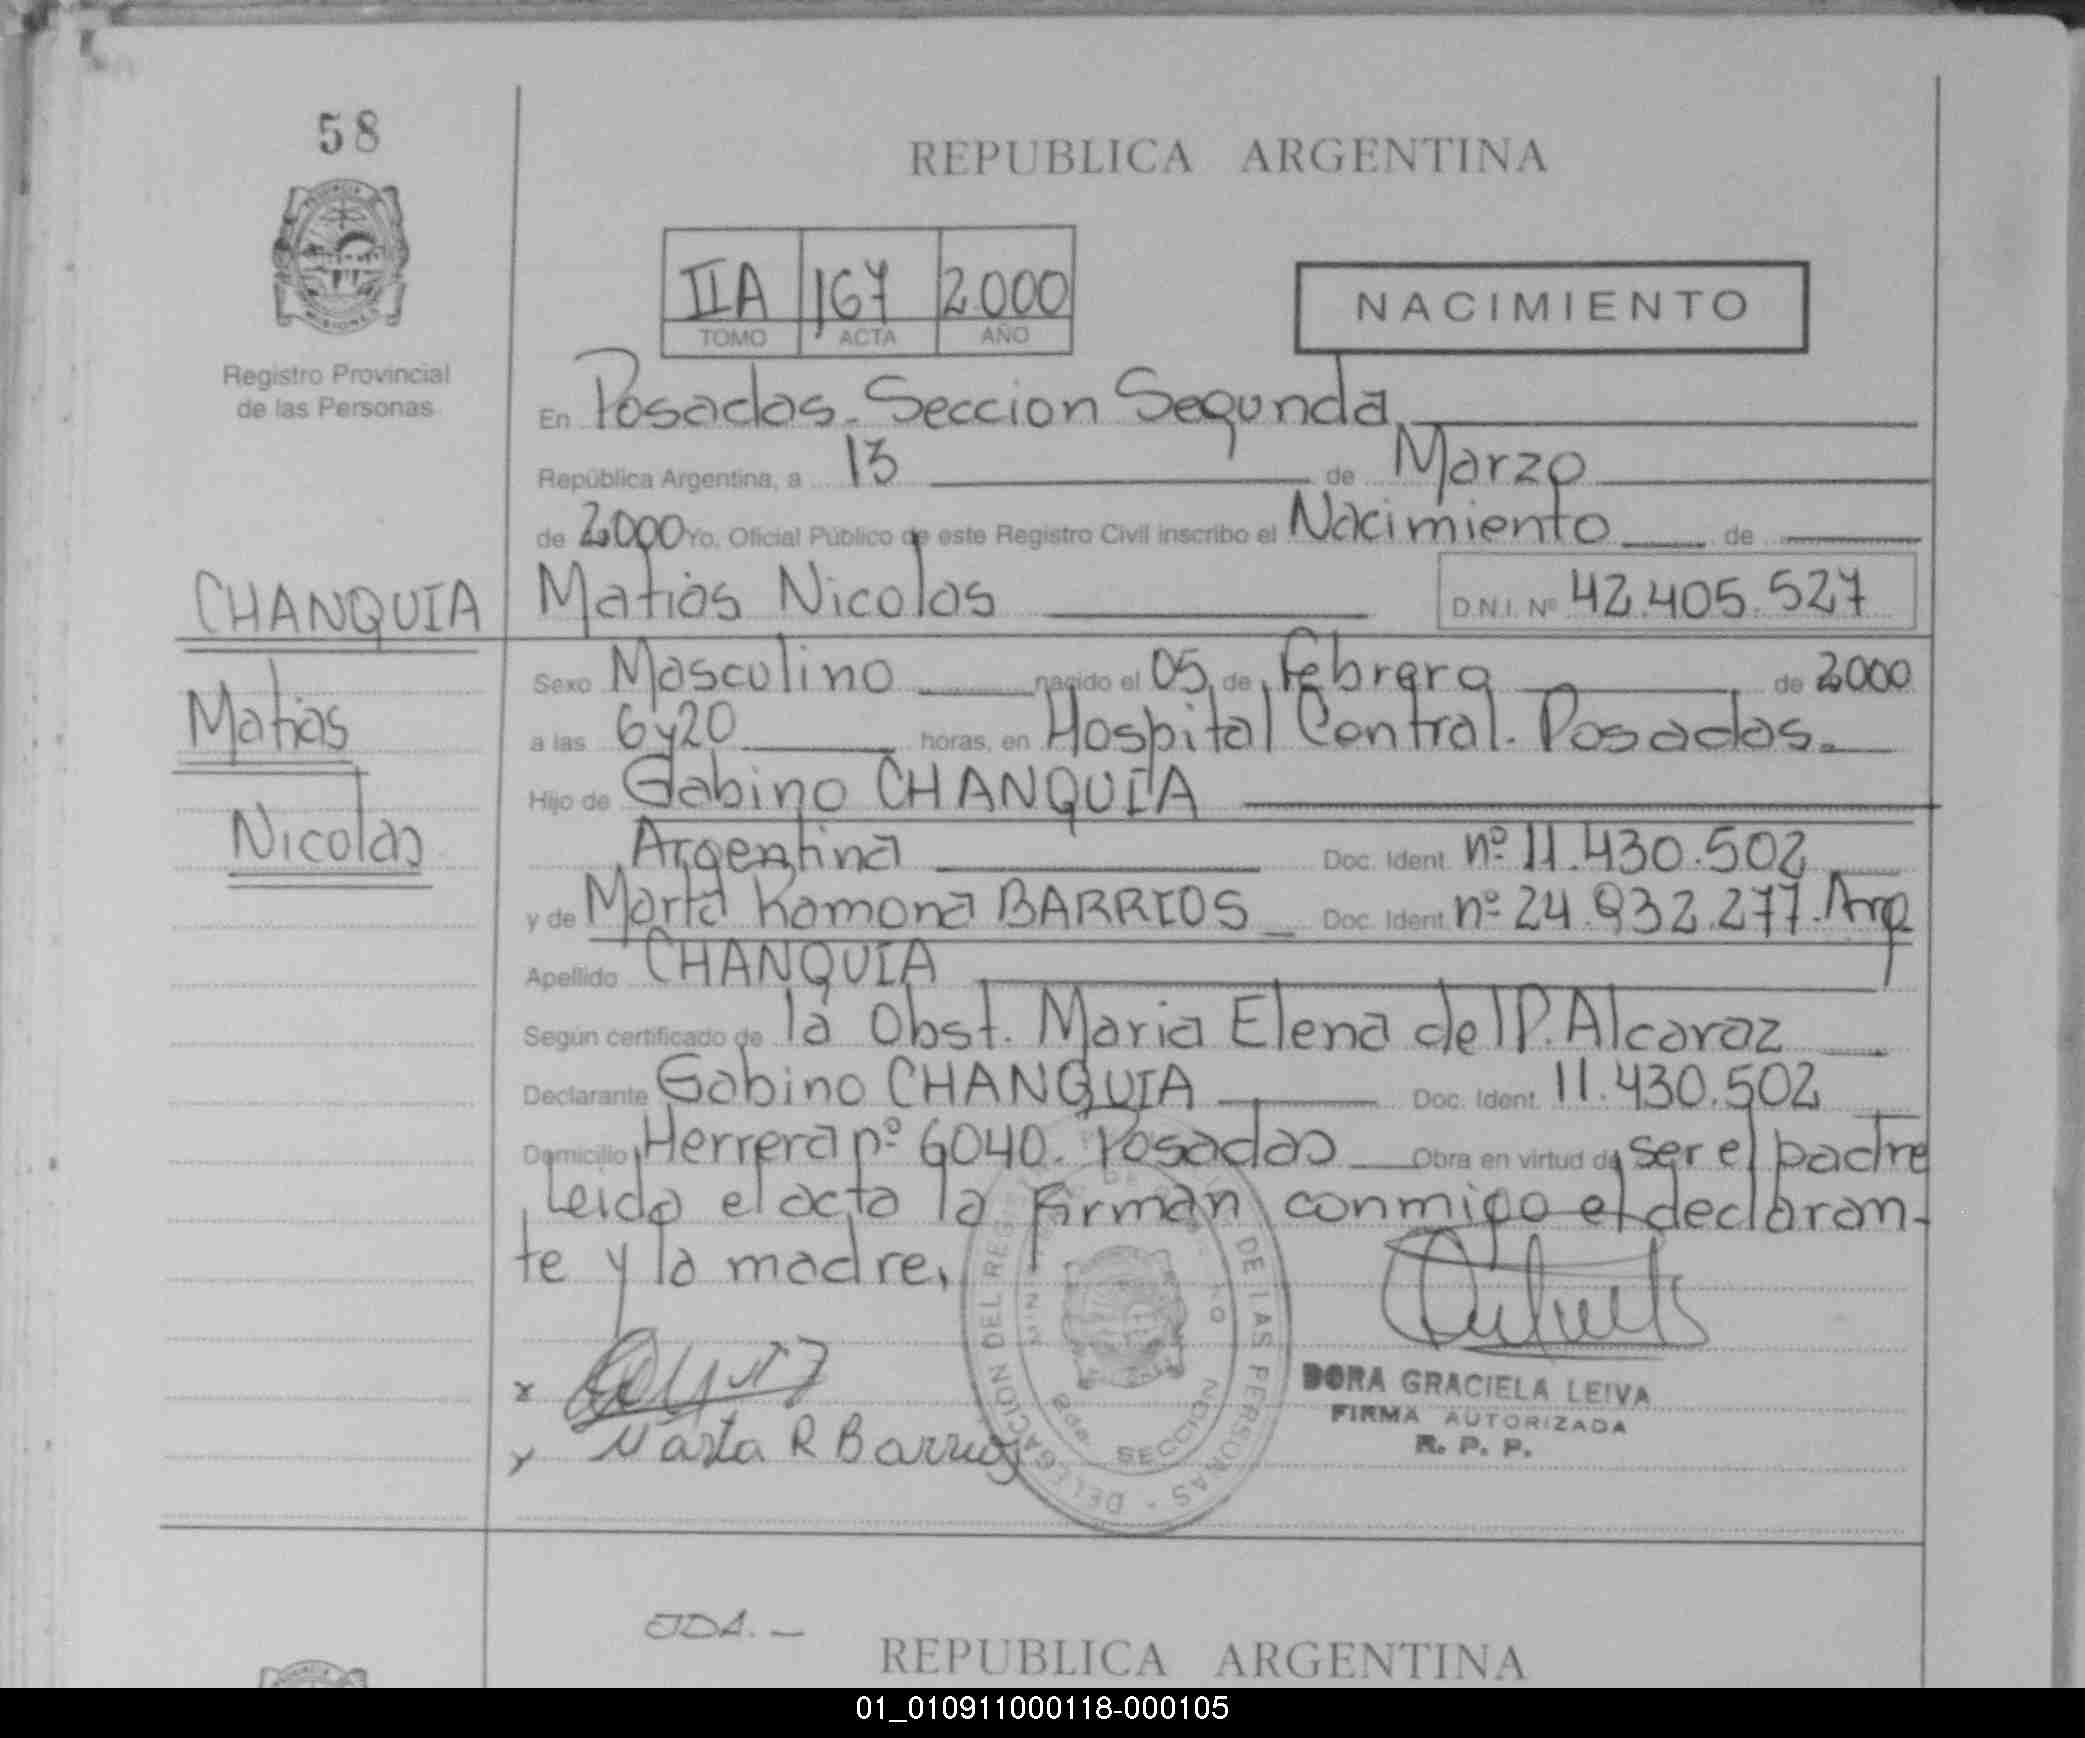 58
REPUBLICA ARGENTINA
IIA 167 2000
TOMO ACTA AÑO
NACIMIENTO
Registro Provincial
de las Personas
En Posadas. Seccion Segunda
República Argentina, a 13 de Marzo
de 2000 Yo, Oficial Público de este Registro Civil inscribo el Nacimiento de
CHANQUIA Matias Nicolas D.N.I. Nº 42.405.527
Matias
Nicolas
Sexo Masculino nacido el 05 de Febrero de 2000
a las 6y20 horas, en Hospital Central. Posadas.
Hijo de Gabino CHANQUIA
Argentina Doc. Ident. nº 11.430.502
y de Marta Ramona BARRIOS Doc. Ident. nº 24.932.277. Arg
Apellido CHANQUIA
Según certificado de la Obst. Maria Elena del P. Alcaraz
Declarante Gabino CHANQUIA Doc. Ident. 11.430.502
Domicilio Herrera nº 6040. Posadas Obra en virtud de ser el padre
Leida el acta la firman conmigo el declaran-
te y la madre,
x
Marta R Barrios
DELEGACION DEL REGISTRO DE LAS PERSONAS
2da. SECCION
DORA GRACIELA LEIVA
FIRMA AUTORIZADA
R. P. P.
REPUBLICA ARGENTINA
01_010911000118-000105